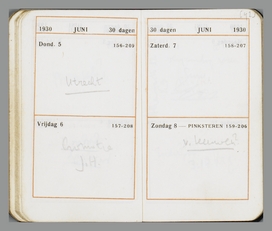 1930 JUNI 30 dagen
Dond. 5 156-209
Utrecht
Vrijdag 6 157-208
J.H.
30 dagen JUNI 1930
Zaterd. 7 158-207
Zondag 8 — PINKSTEREN 159-206